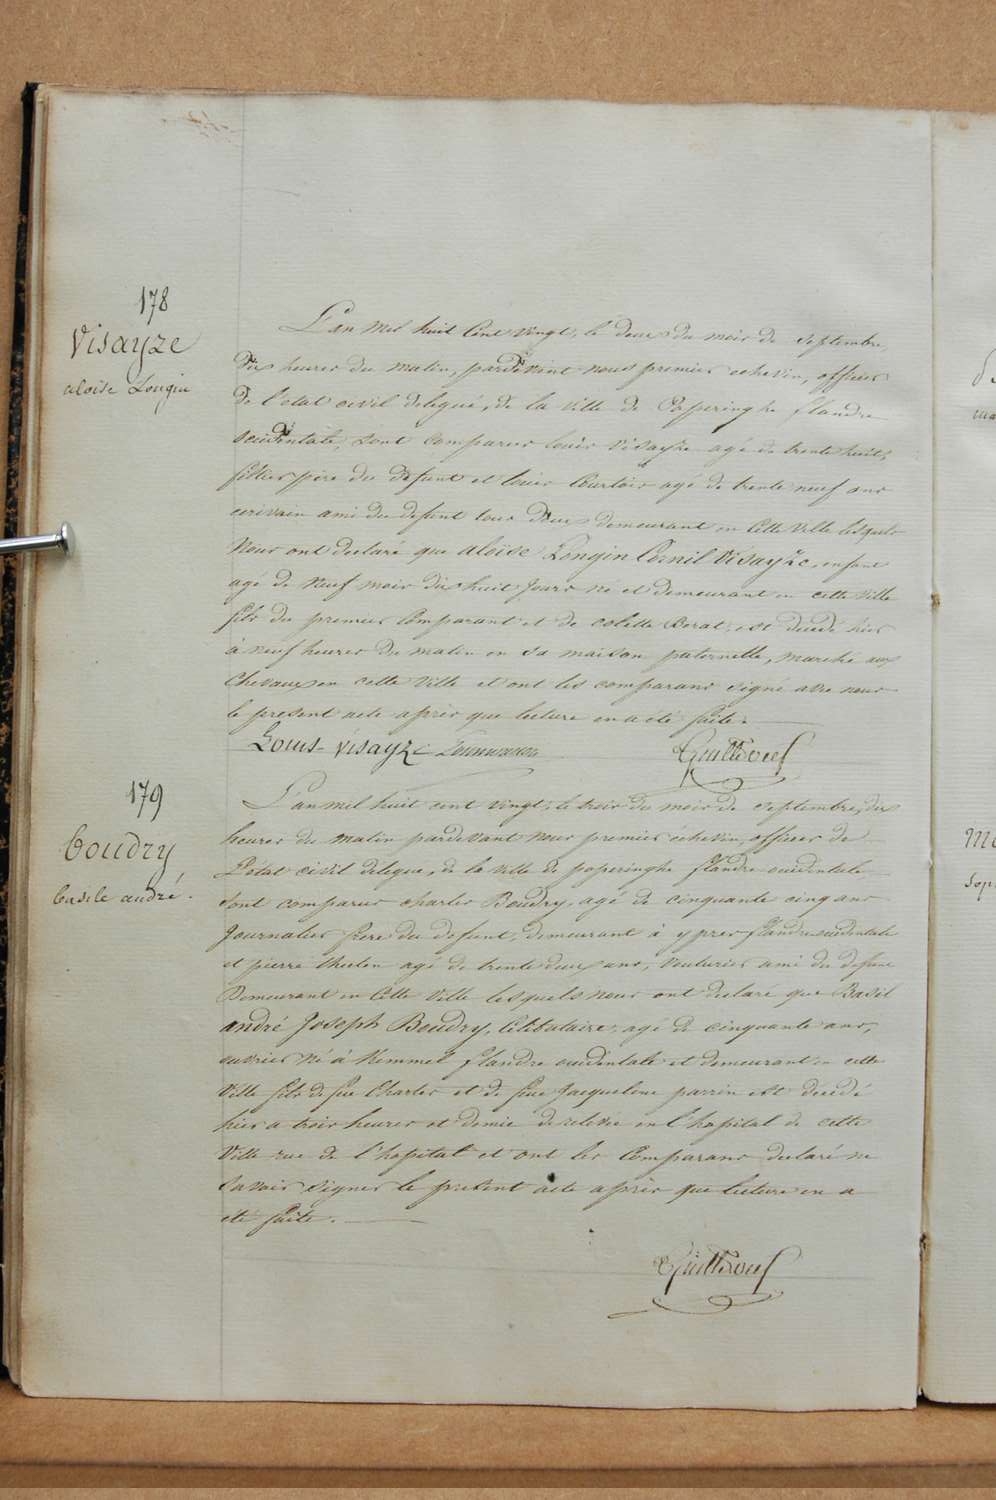 178
Visayze
aloïse Longin
L'an Mil huit Cent vingt, le deux du mois de septembre,
Dix heures du matin, pardevant nous premier echevin, officier
De l'etat civil delegué, de la ville de Poperinghe flandre
occidentale, sont comparus louis visayze agé de trente huit,
père du defunt et louis Courtois agé de trente neuf ans
ecrivain ami du defunt tous deux demeurant en cette ville lesquels
Nous ont declaré que aloïse Longin Cornil Visayze, enfant
agé de Neuf mois dix huit jours né et demeurant en cette ville
fils du premier Comparant et de colette Berat, est decedé hier
à neuf heures du matin en sa maison paternelle, marché aux
Chevaux en cette ville et ont les comparans signé avec nous
le present acte après que lecture en a été faite.
Louis Visayze
179
Boudry
basile andré.
L'an mil huit cent vingt, le trois du mois de septembre, dix
heures du matin pardevant nous premier échevin, officier de
l'état civil delegué, de la ville de poperinghe flandre occidentale
sont comparus charles Boudry, agé de cinquante cinq ans
Journalier frere du defunt, demeurant à ypres flandre occidentale
et pierre agé de trente deux ans, voiturier ami du defunt
Demeurant en Cette ville lesquels nous ont declaré que Basil
andré Joseph Boudry, Celibataire, agé de cinquante ans,
ouvrier né à Kemmel flandre occidentale et demeurant en cette
Ville fils de feu Charles et de feue Jacqueline parrin est decedé
hier a trois heures et demie de relevée en l'hopital de cette
Ville rue de l'hopital et ont les Comparans declaré ne
savoir signer le present acte après que lecture en a
été faite.